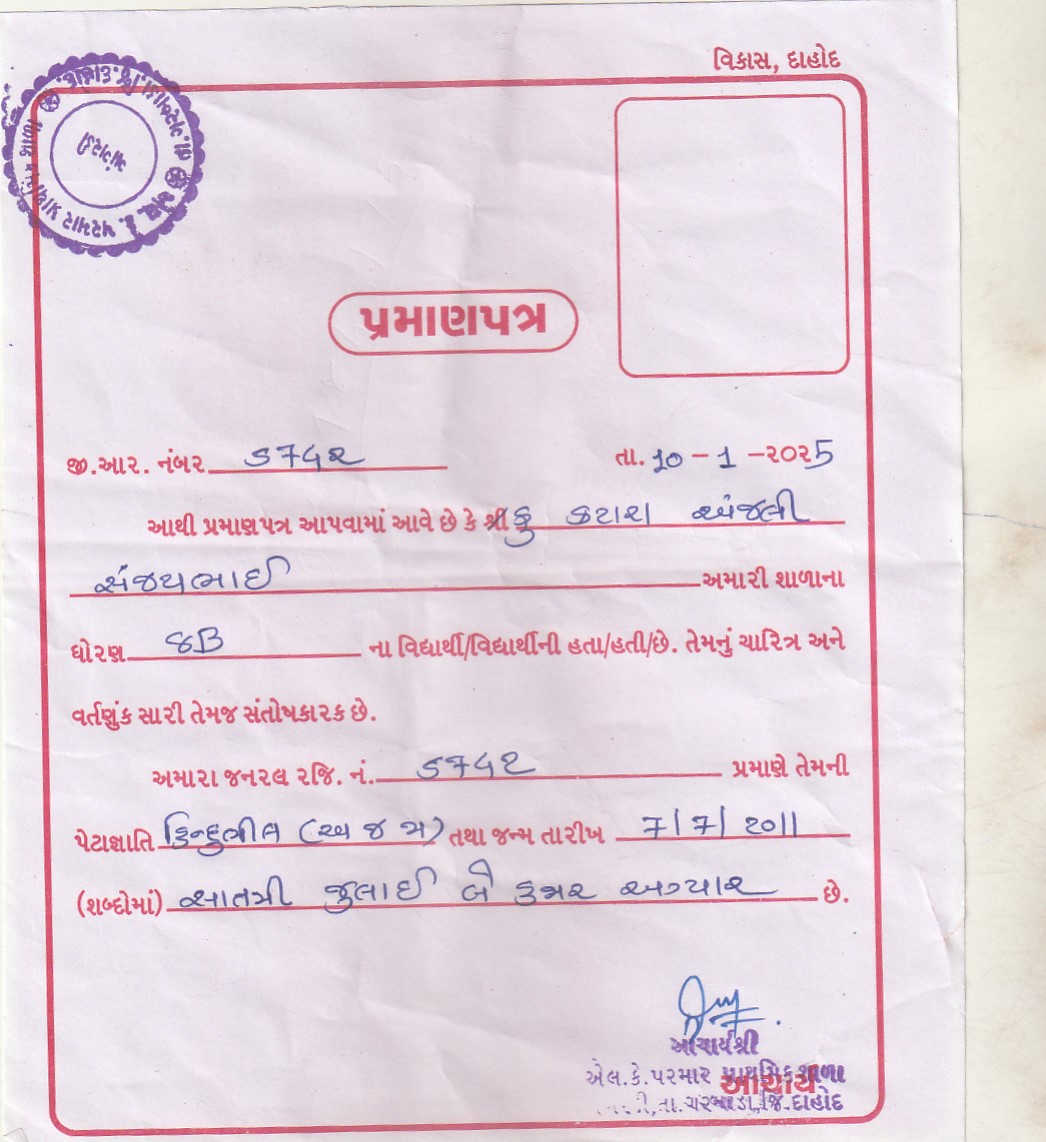 વિકાસ, દાહોદ
ગાંગરડી
પ્રમાણપત્ર
જી.આર. નંબર ૬૧૫૨ તા. ૧૦ - ૧ - ૨૦૨5
આથી પ્રમાણપત્ર આપવામાં આવે છે કે શ્રી કુ કટારા અંજલી
સંજયભાઈ અમારી શાળાના
ધોરણ ૭B ના વિદ્યાર્થી/વિદ્યાર્થીની હતા/હતી/છે. તેમનું ચારિત્ર અને
વર્તણુંક સારી તેમજ સંતોષકારક છે.
અમારા જનરલ રજિ. નં. ૬૧૫૨ પ્રમાણે તેમની
પેટાજ્ઞાતિ હિન્દુભીલ (અ જ જા) તથા જન્મ તારીખ 7/7/2011
(શબ્દોમાં) સાતમી જુલાઈ બે હજાર અગ્યાર છે.
આચાર્યશ્રી
એલ.કે.પરમાર પ્રાથમિક શાળા
આચાર્ય
તા. ગરબાડા, જિ.દાહોદ